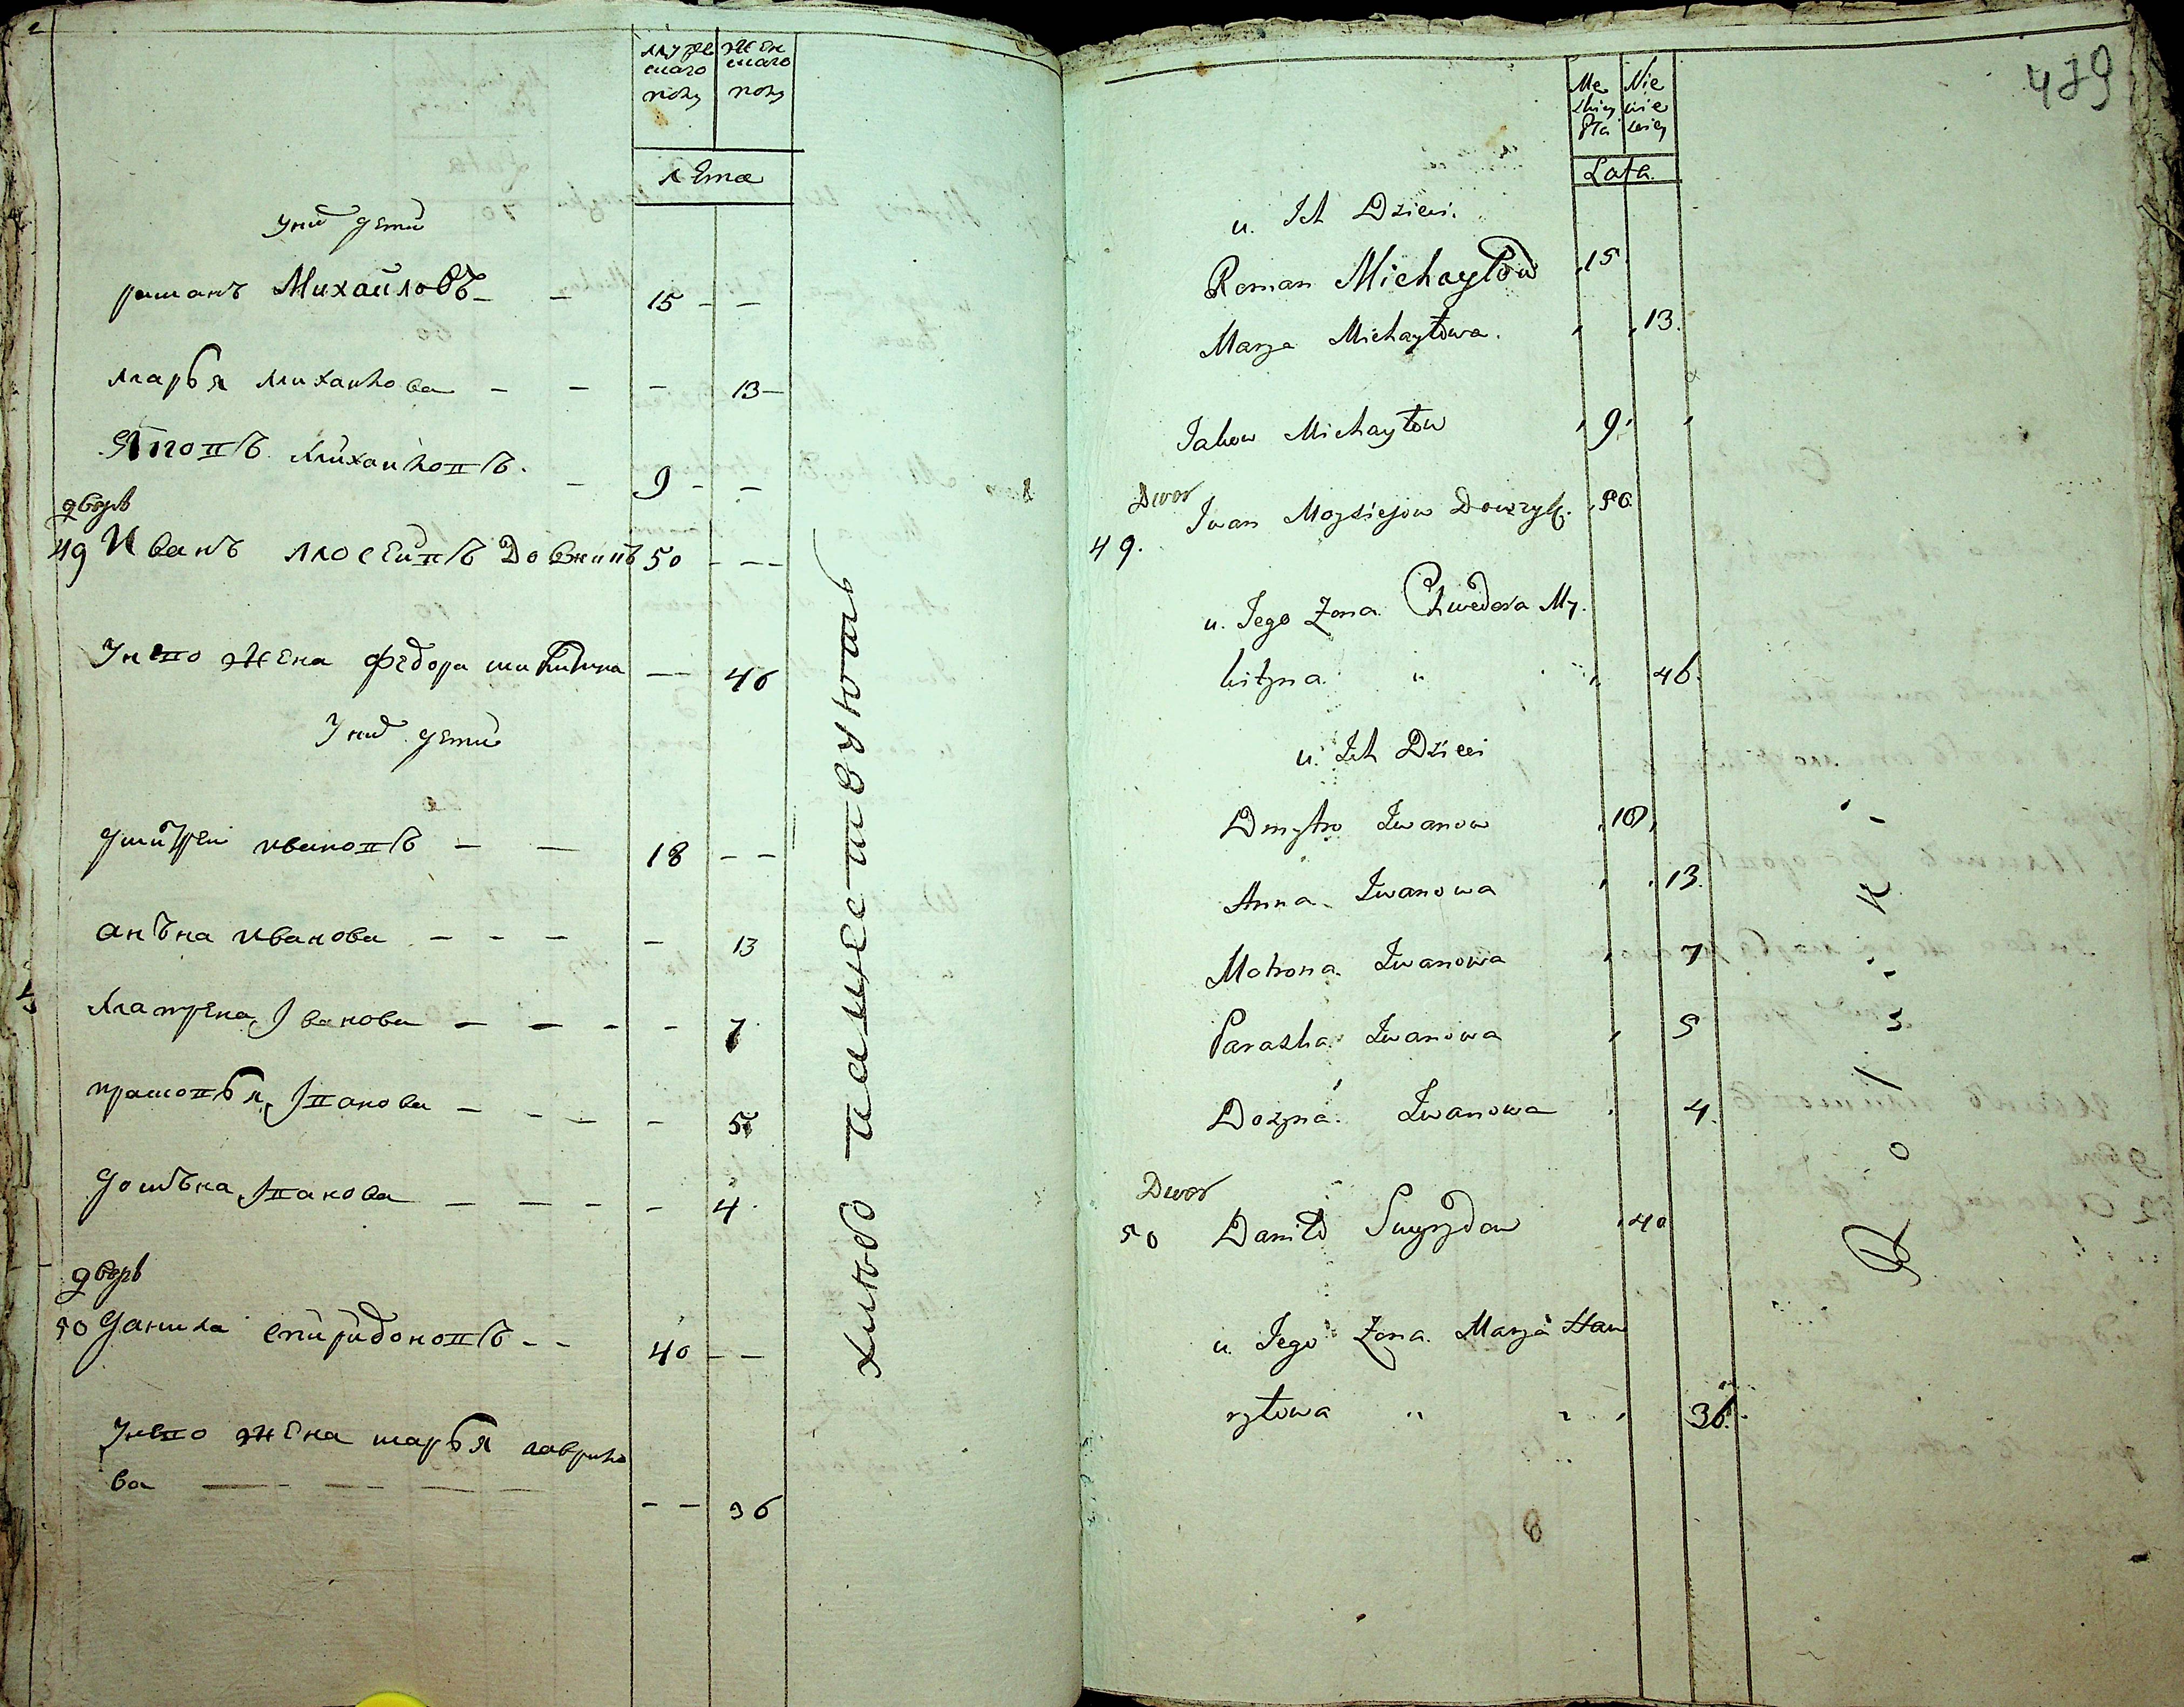 мужескаго полу
женскаго полу
лета
У них дети
романъ Михайловъ - - 15 - -
марья михайлова - - - 13 -
Яковъ михайловъ. - 9 - -
дворъ
49 Иванъ мосеивъ Довжикъ 50 - - -
У него жена федора микитина - 46
У них дети
дмитрей ивановъ - - 18 - -
анъна иванова - - - - 13
матрена Іванова - - - - 7
прасковья Іванова - - - - 5
домъна Іванова - - - - 4
дворъ
50 данила спиридоновъ - - 40 - -
У него жена марья гаврило
ва - - - - - - 36
479
Mę skiey Płci
Nie wie skiey
Lata.
u. Ich Dzieci.
Roman Michayłow 15
Marya Michayłowa. 13.
Jakow Michayłow 9
Dwor
49. Iwan Moysiejow Dowzyk. 50
u. Jego Zona Chwedora My.
kitzna " 46.
u. Ich Dzieci
Dmytro Iwanow 18
Anna Iwanowa 13.
Motrona Iwanowa 7
Paraska Iwanowa 5
Domna. Iwanowa 4.
Dwor
50 Daniło Swyrydow 40
u. Jego Zona. Marya Haw
ryłowa " 36.